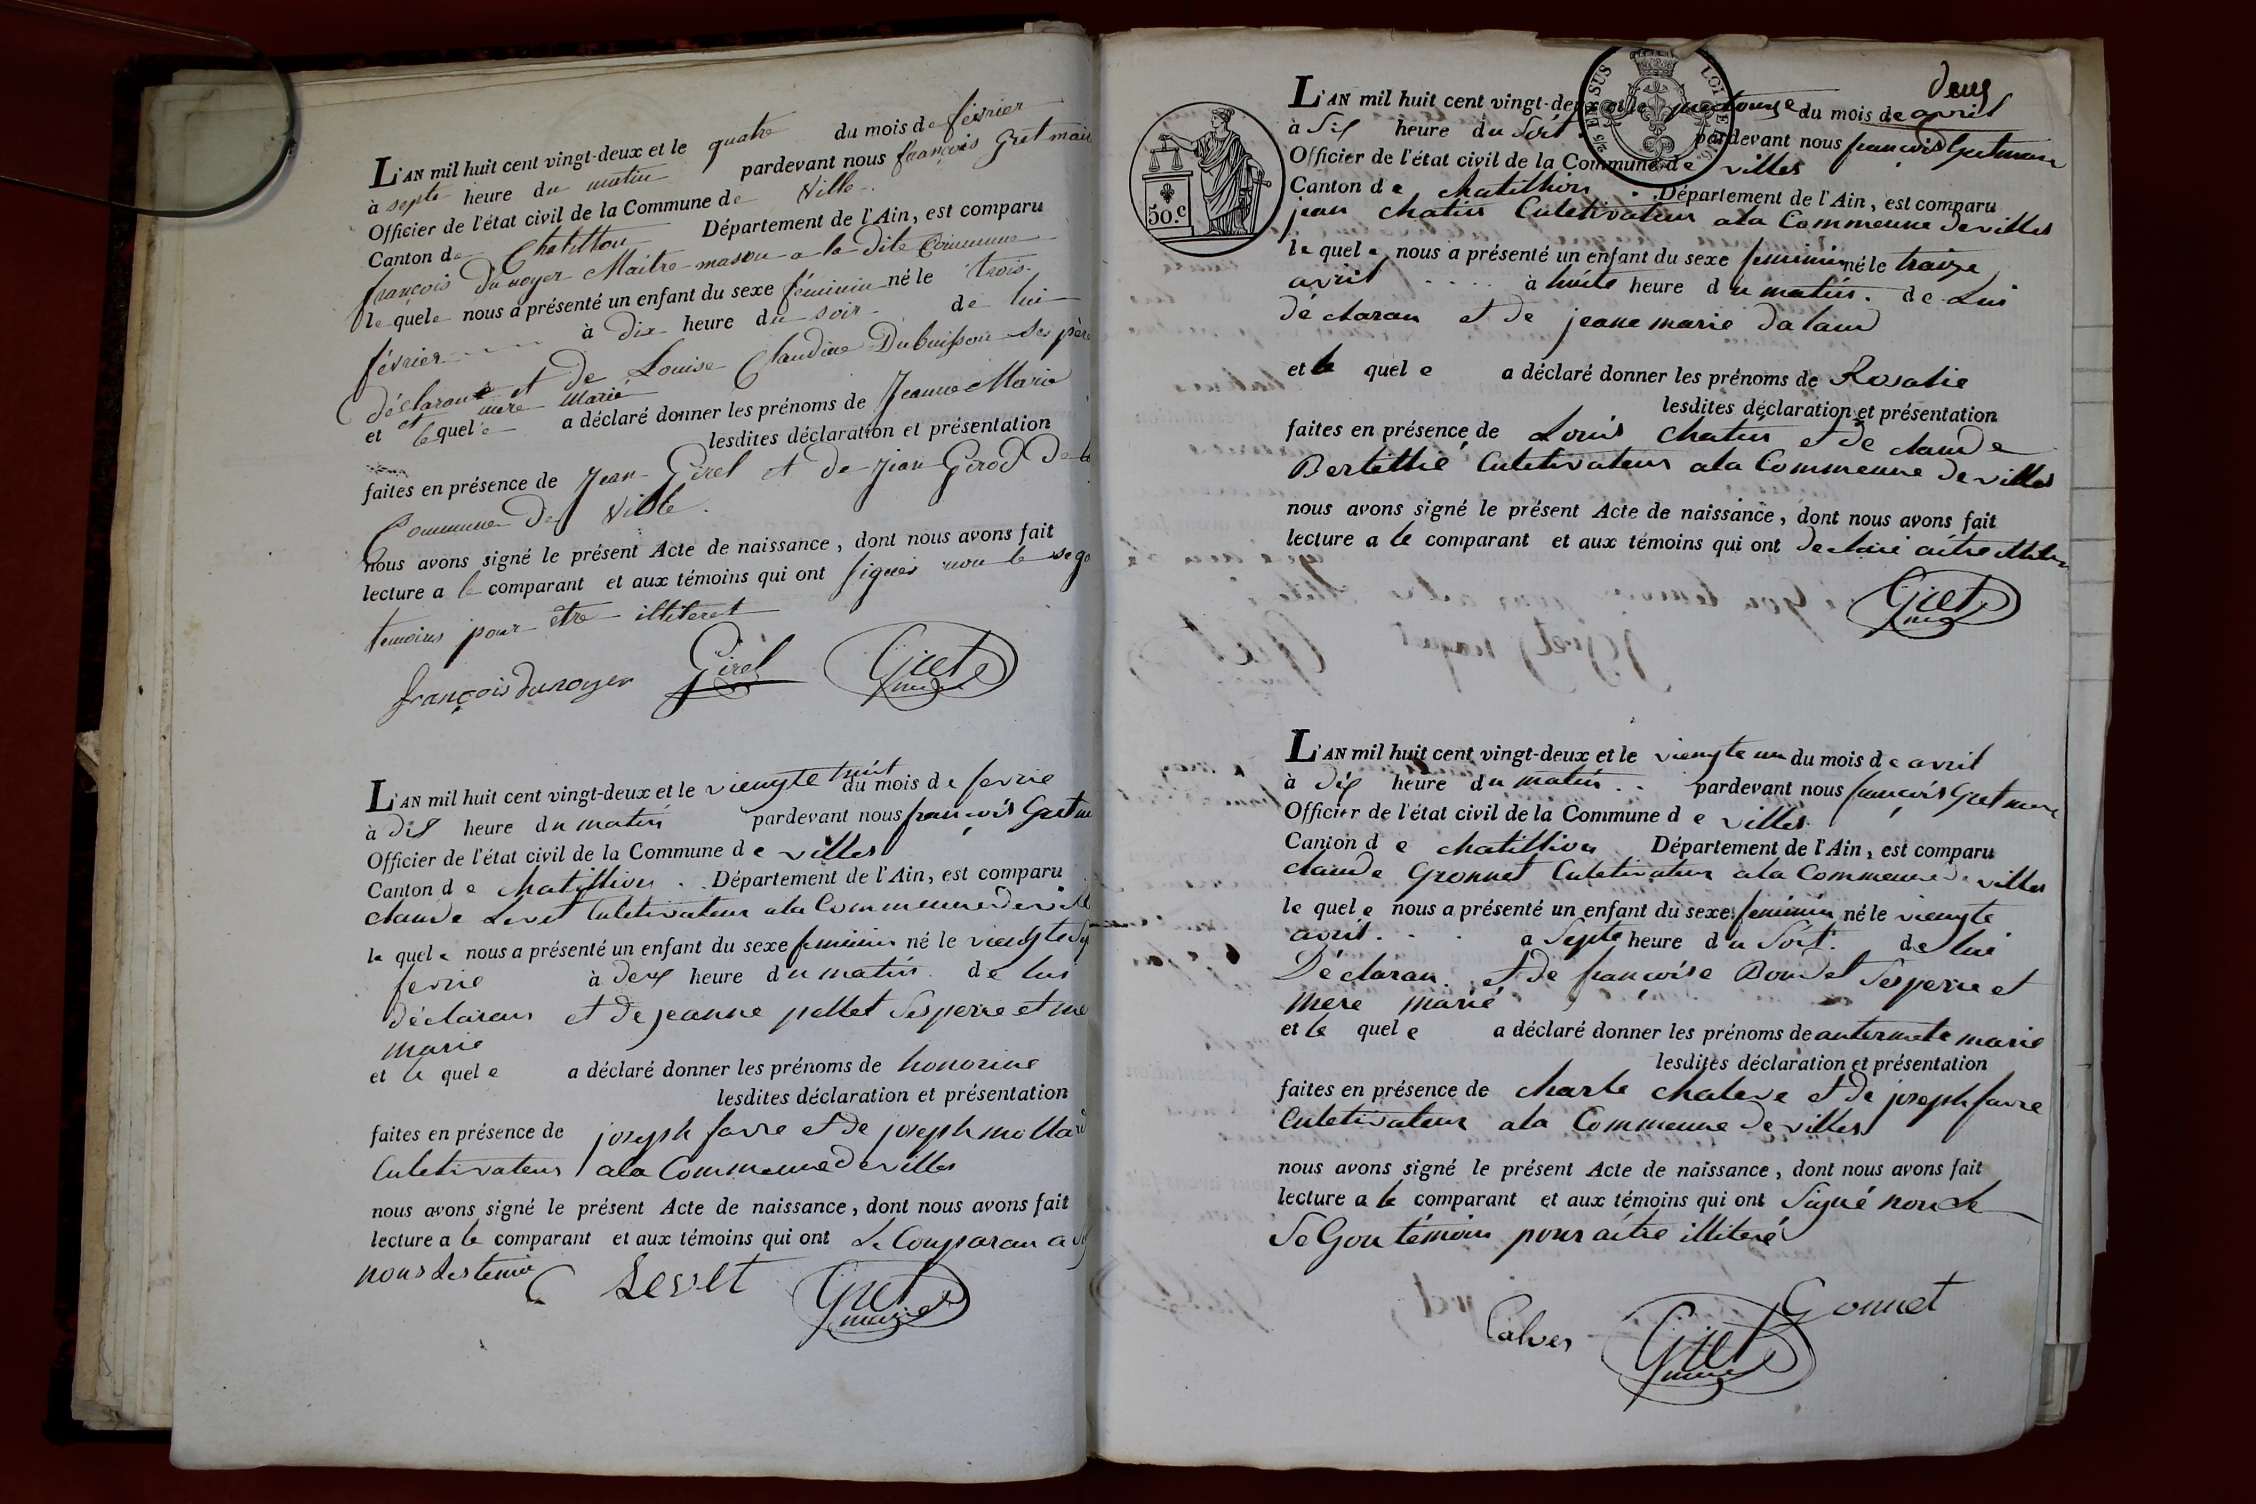 L'AN mil huit cent vingt-deux et le quatre du mois de février
à septe heure du matin pardevant nous françois Gret mair
Officier de l'état civil de la Commune de Ville
Canton de Chatillon Département de l'Ain, est comparu
françois dunoyer Maitre masou a la dite Commune
le quele nous a présenté un enfant du sexe féminin né le trois
février à dix heure du soir de lui
déclarant et de Louise Claudine Dubuisson ses père
et mere Marié
et le quele a déclaré donner les prénoms de Jeanne Marie
lesdites déclaration et présentation
faites en présence de Jean Girel et de Jean Girod de la
Commune de Ville.
nous avons signé le présent Acte de naissance, dont nous avons fait
lecture a le comparant et aux témoins qui ont signés non le sego
temoins pour être illiteret
françois dunoyer Girel Gret
L'AN mil huit cent vingt-deux et le viengte huit du mois de fevrie
à dis heure du matin pardevant nous françois Gret
Officier de l'état civil de la Commune de villes
Canton de chatillion Département de l'Ain, est comparu
claude Levet Culetivateur ala Commeune de vill
le quel e nous a présenté un enfant du sexe feminin né le viengte
fevrie à deux heure du matin de lui
déclaran et de jeanne pellet ses perre et me
marie
et le quel e a déclaré donner les prénoms de honorine
lesdites déclaration et présentation
faites en présence de joseph favre et de joseph mollard
Culetivateur ala Commeune de villes
nous avons signé le présent Acte de naissance, dont nous avons fait
lecture a le comparant et aux témoins qui ont Le Comparan a
nous les temoi Levet Gret
maire
deux
L'AN mil huit cent vingt-deux et le du mois de avril
à Sis heure du Soit pardevant nous françois Gret maire
Officier de l'état civil de la Commune de villes
Canton de chatillion Département de l'Ain, est comparu
jean chatin Culetivateur ala Commeune de villes
le quel e nous a présenté un enfant du sexe feminin né le traize
avril à huite heure du matin de Lui
déclaran et de jeane marie
et le quel e a déclaré donner les prénoms de Rosalie
lesdites déclaration et présentation
faites en présence de Louis chatin et de claude
Bertethié Culetivateur ala Commeune de villes
nous avons signé le présent Acte de naissance, dont nous avons fait
lecture a le comparant et aux témoins qui ont declaré aitre
Gret
50 c
L'AN mil huit cent vingt-deux et le viengte un du mois de avril
à dis heure du matin pardevant nous françois Gret maire
Officier de l'état civil de la Commune de villes
Canton de chatillion Département de l'Ain, est comparu
claude Gronnet Culetivateur ala Commeune de villes
le quel e nous a présenté un enfant du sexe feminin né le viengte
avril à Septe heure du Soit de lui
Déclaran et de françoise Boudet Ses perre et
mere marié
et le quel e a déclaré donner les prénoms de antoinete marie
lesdites déclaration et présentation
faites en présence de charle chaleve et de joseph favre
Culetivateur ala Commeune de villes
nous avons signé le présent Acte de naissance, dont nous avons fait
lecture a le comparant et aux témoins qui ont Signé non le
Se Gon témoin pour aitre illiteré
Calver Gret Gonnet